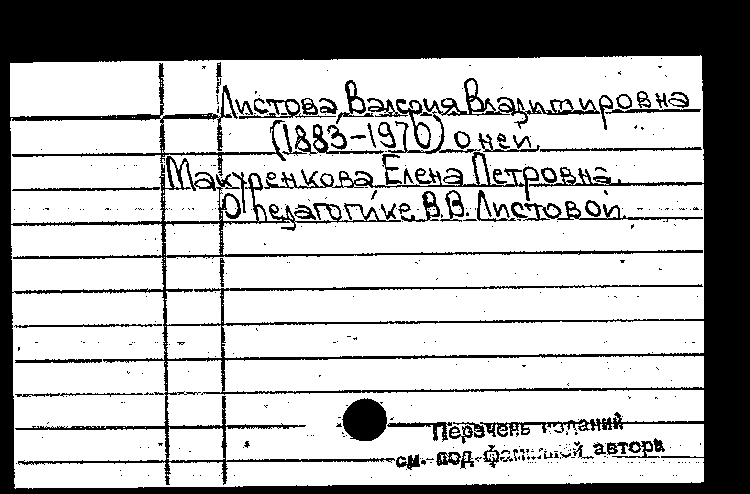 Листова Валерия Владимировна
(1883-1970) о ней.
Макуренкова Елена Петровна.
О педагогике В.В. Листовой.
Перечень изданий
см. под фамилией автора